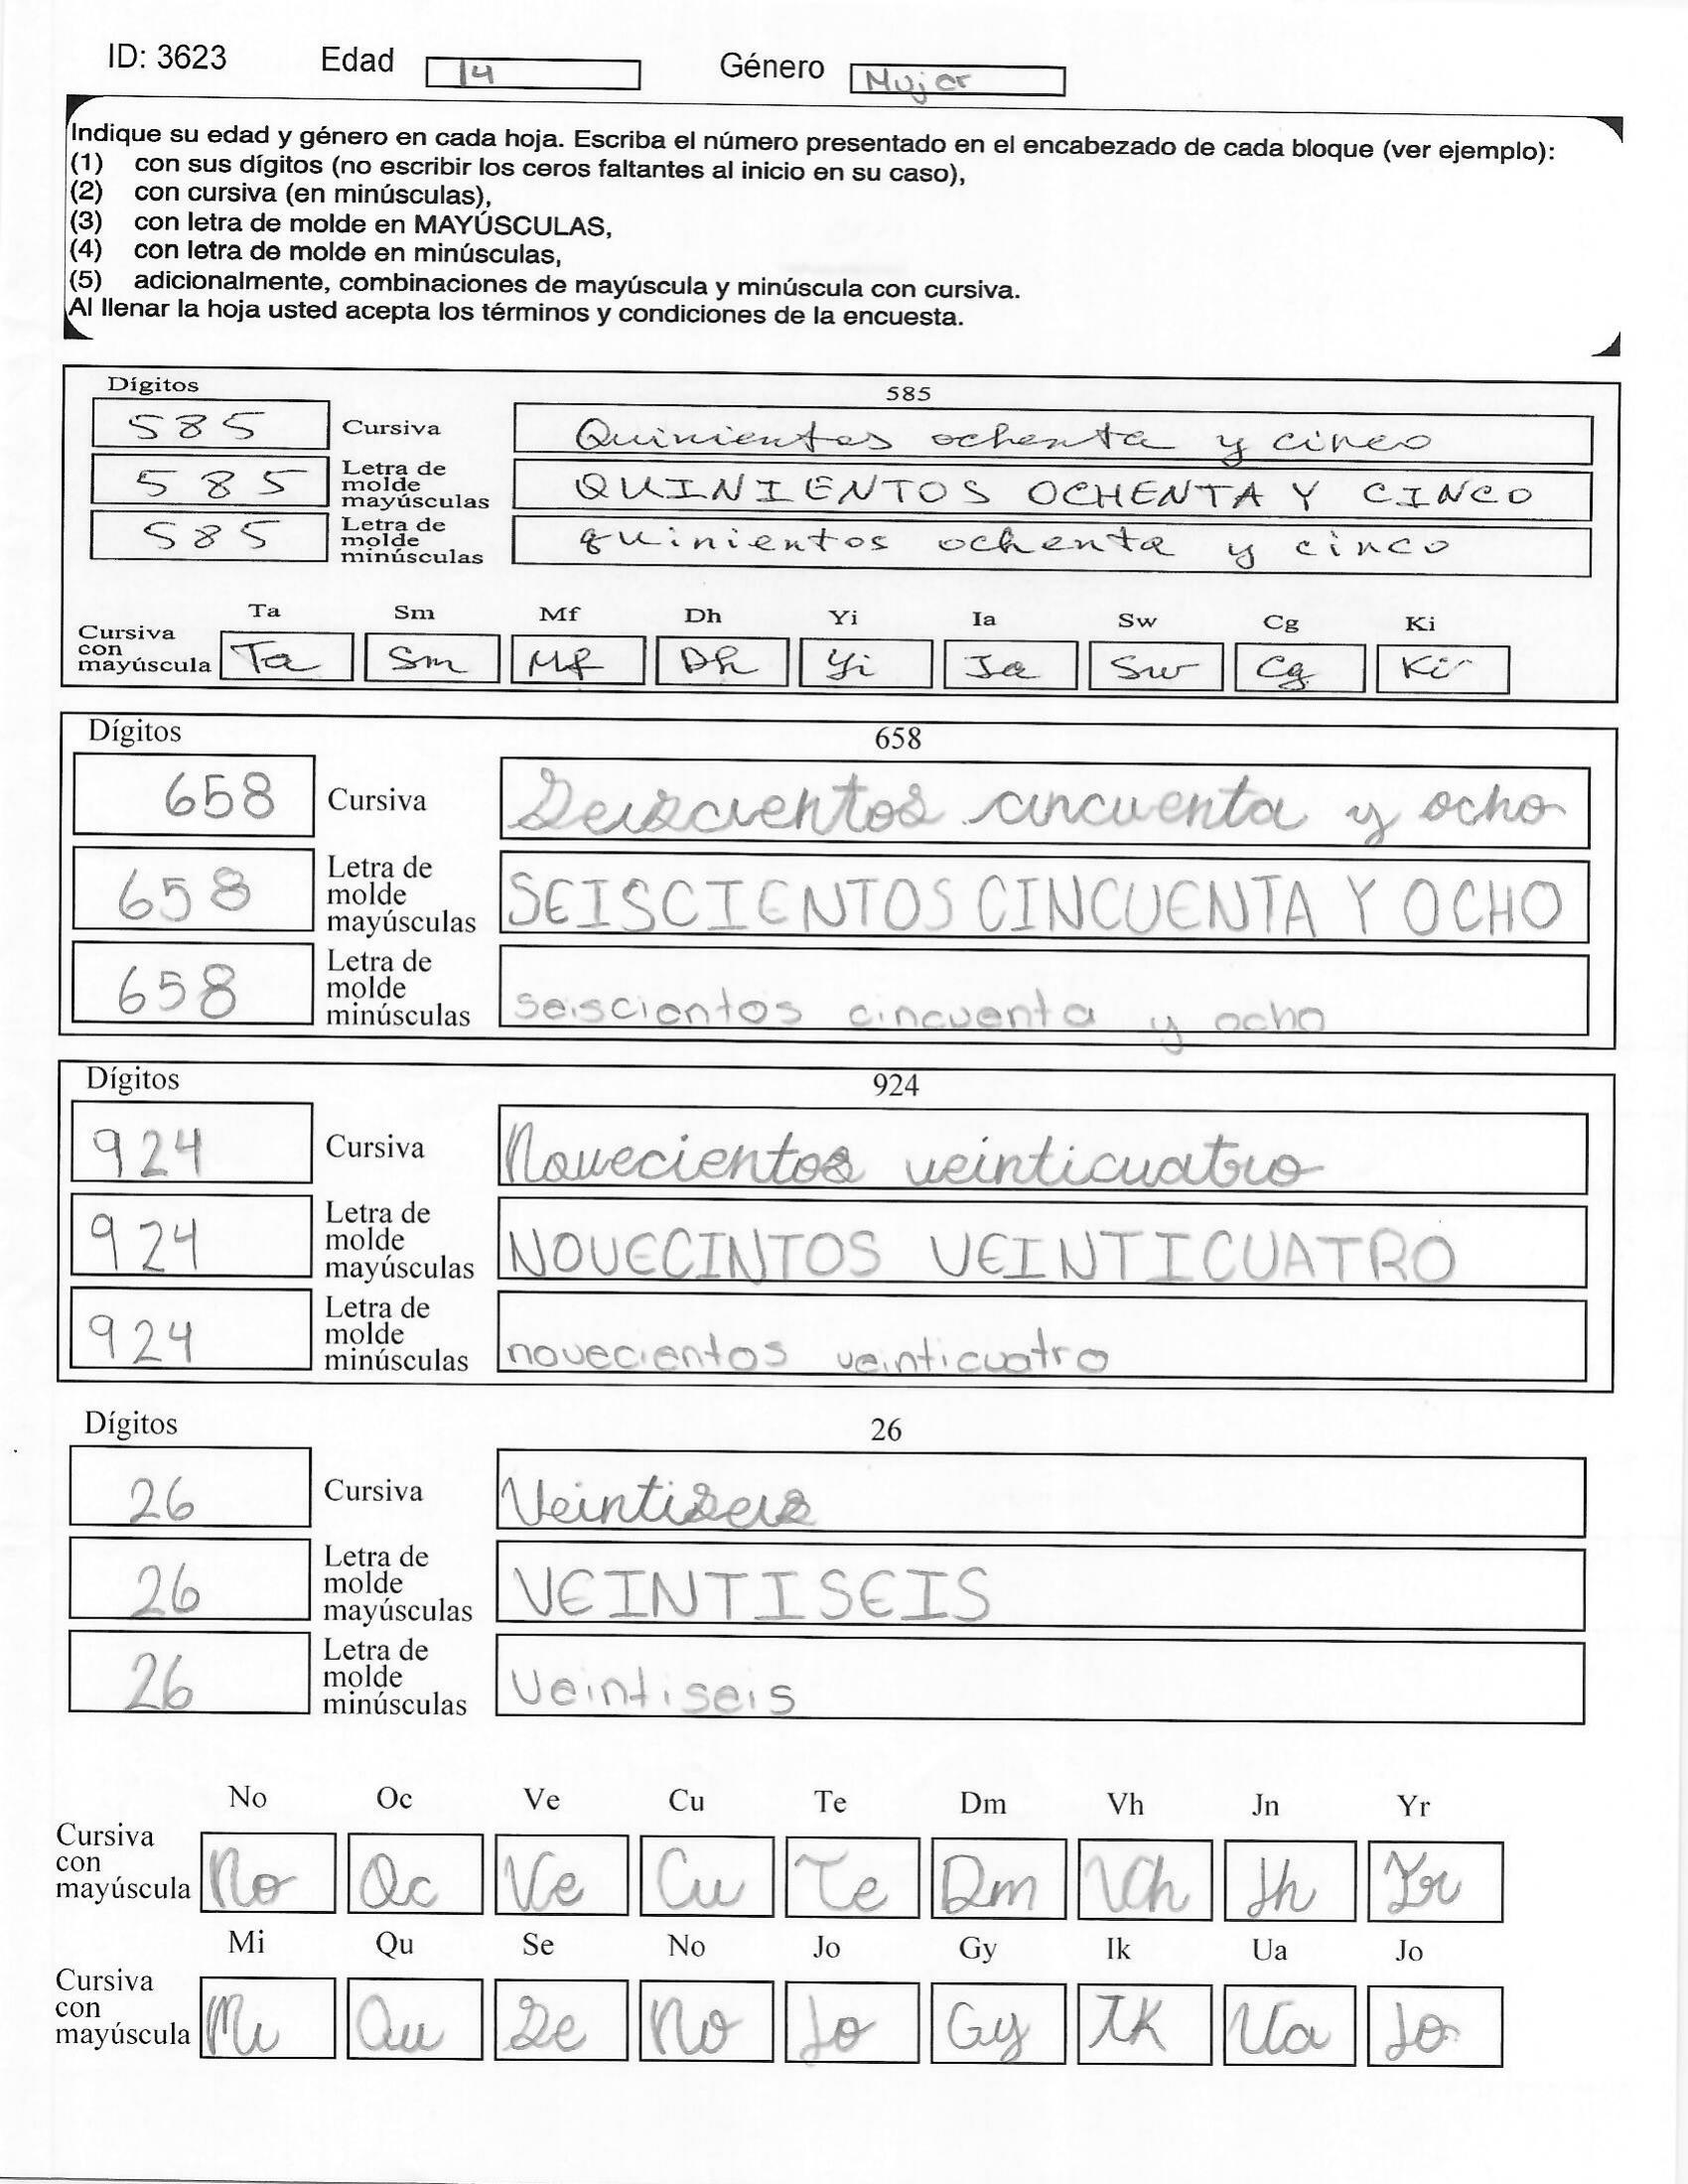 ID: 3623 Edad 14 Género Mujer
Indique su edad y género en cada hoja. Escriba el número presentado en el encabezado de cada bloque (ver ejemplo):
(1) con sus dígitos (no escribir los ceros faltantes al inicio en su caso),
(2) con cursiva (en minúsculas),
(3) con letra de molde en MAYÚSCULAS,
(4) con letra de molde en minúsculas,
(5) adicionalmente, combinaciones de mayúscula y minúscula con cursiva.
Al llenar la hoja usted acepta los términos y condiciones de la encuesta.
Dígitos 585
585 Cursiva Quinientos ochenta y cinco
585 Letra de molde mayúsculas QUINIENTOS OCHENTA Y CINCO
585 Letra de molde minúsculas quinientos ochenta y cinco
Ta Sm Mf Dh Yi Ia Sw Cg Ki
Cursiva con mayúscula Ta Sm Mf Dh Yi Ia Sw Cg Ki
Dígitos 658
658 Cursiva Seiscientos cincuenta y ocho
658 Letra de molde mayúsculas SEISCIENTOS CINCUENTA Y OCHO
658 Letra de molde minúsculas seiscientos cincuenta y ocho
Dígitos 924
924 Cursiva Novecientos veinticuatro
924 Letra de molde mayúsculas NOVECINTOS VEINTICUATRO
924 Letra de molde minúsculas novecientos veinticuatro
Dígitos 26
26 Cursiva Veintiseis
26 Letra de molde mayúsculas VEINTISEIS
26 Letra de molde minúsculas Veintiseis
No Oc Ve Cu Te Dm Vh Jn Yr
Cursiva con mayúscula No Oc Ve Cu Te Dm Vh Jh Yr
Mi Qu Se No Jo Gy Ik Ua Jo
Cursiva con mayúscula Mi Qu Se No Jo Gy IK Ua Jo